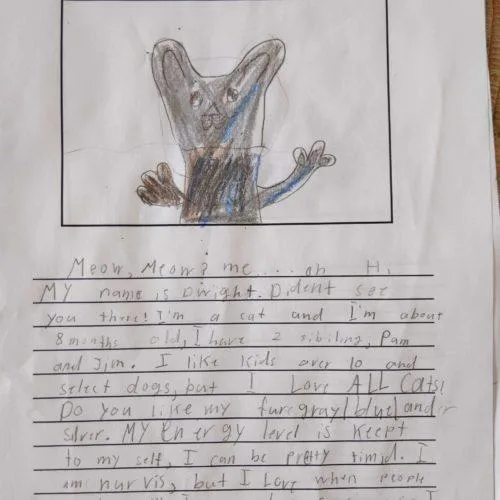 Meow, Meow? me.... oh Hi,
MY name is Dwight. Dident see
you there! I'm a cat and I'm about
8 months old, I have 2 sibiling, Pam
and Jim. I like kids over 10 and
select dogs, but I Love ALL Cats!
Do you like my fure gray/blue/and
silver. MY en er gy level is keept
to my self, I can be pretty timid. I
am nur vis, but I Love when people